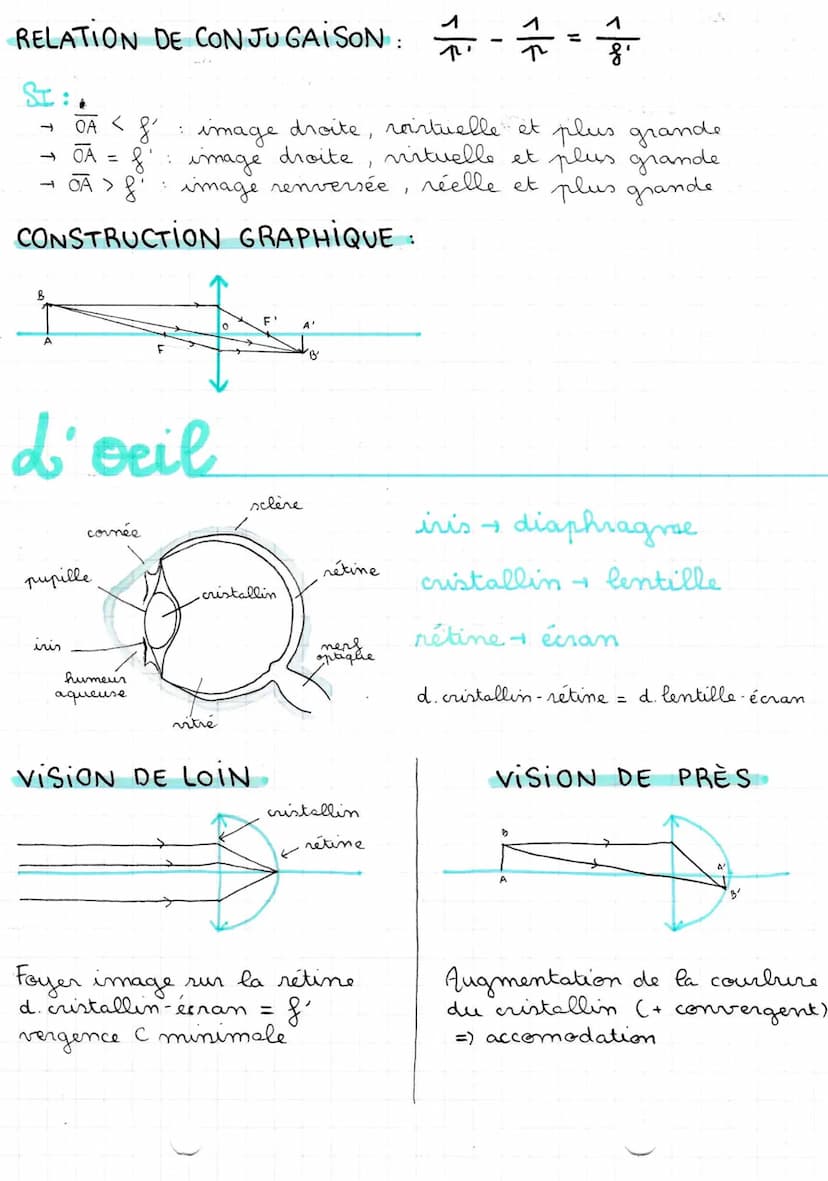 RELATION DE CONJUGAISON : 1/p' - 1/p = 1/f'
SI :
→ OA < f' : image droite, virtuelle et plus grande
→ OA = f' : image droite, virtuelle et plus grande
→ OA > f' : image renversée, réelle et plus grande
CONSTRUCTION GRAPHIQUE :
B
A
F
O
F'
A'
B'
L'oeil
sclère
cornée
pupille
cristallin
rétine
iris
humeur
aqueuse
nerf
optique
vitré
iris → diaphragme
cristallin → lentille
rétine → écran
d. cristallin-rétine = d. lentille-écran
VISION DE LOIN
cristallin
rétine
Foyer image sur la rétine
d. cristallin-écran = f'
vergence C minimale
VISION DE PRÈS
B
A
A'
B'
Augmentation de la courbure
du cristallin (+ convergent)
=> accomodation